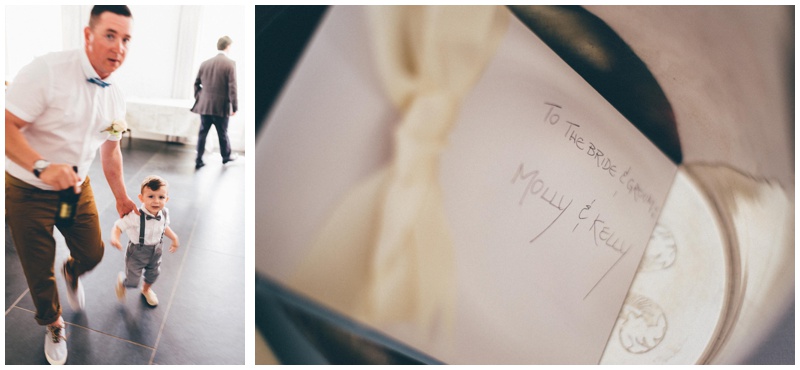 To The BRIDE & GROOM
MOLLY & KELLY